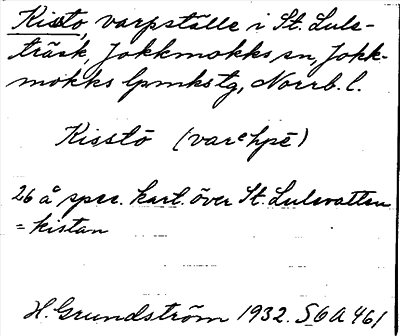 Kisstо, varpställe i St. Luls-
träsk, Jokkmokks sn, Jokk-
mokks lpmkstg, Norrb. l.
Kisstō (varᵉhpē)
26 å spec. kart. över St. Lulevatten
= kistan
H. Grundström 1932. S O A 461